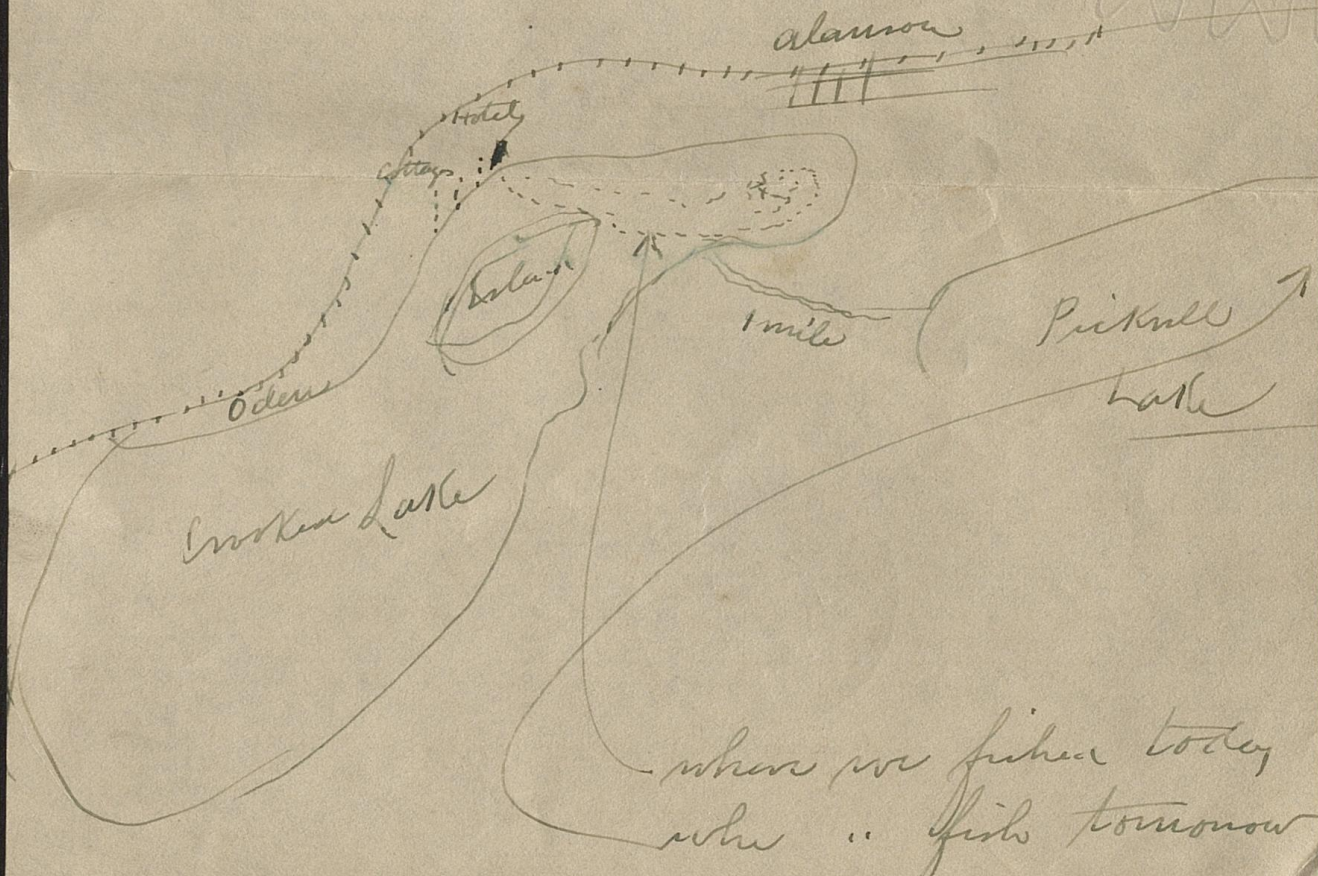 alanson
Hotel
Cottages
Island
1 mile
Pickrell
Lake
Oden
Crooked Lake
where we fished today
whe " fish tomorrow